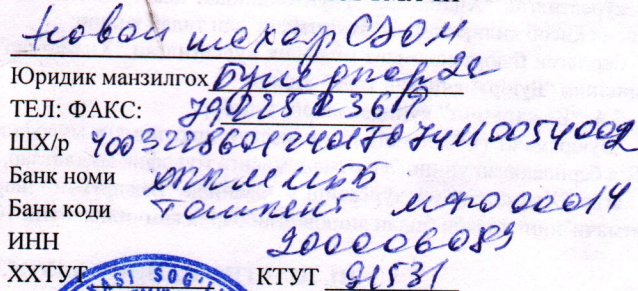 Новои шахар СЭОМ
Юридик манзилгох Бунёдкор 2е
ТЕЛ: ФАКС: 79 2252361
ШХ/р 400322860124017074110054002
Банк номи ХККМ МББ
Банк коди Тошкент МФО 00014
ИНН 200006089
ХХТУТ КТУТ 91531
ASI SOG'LI